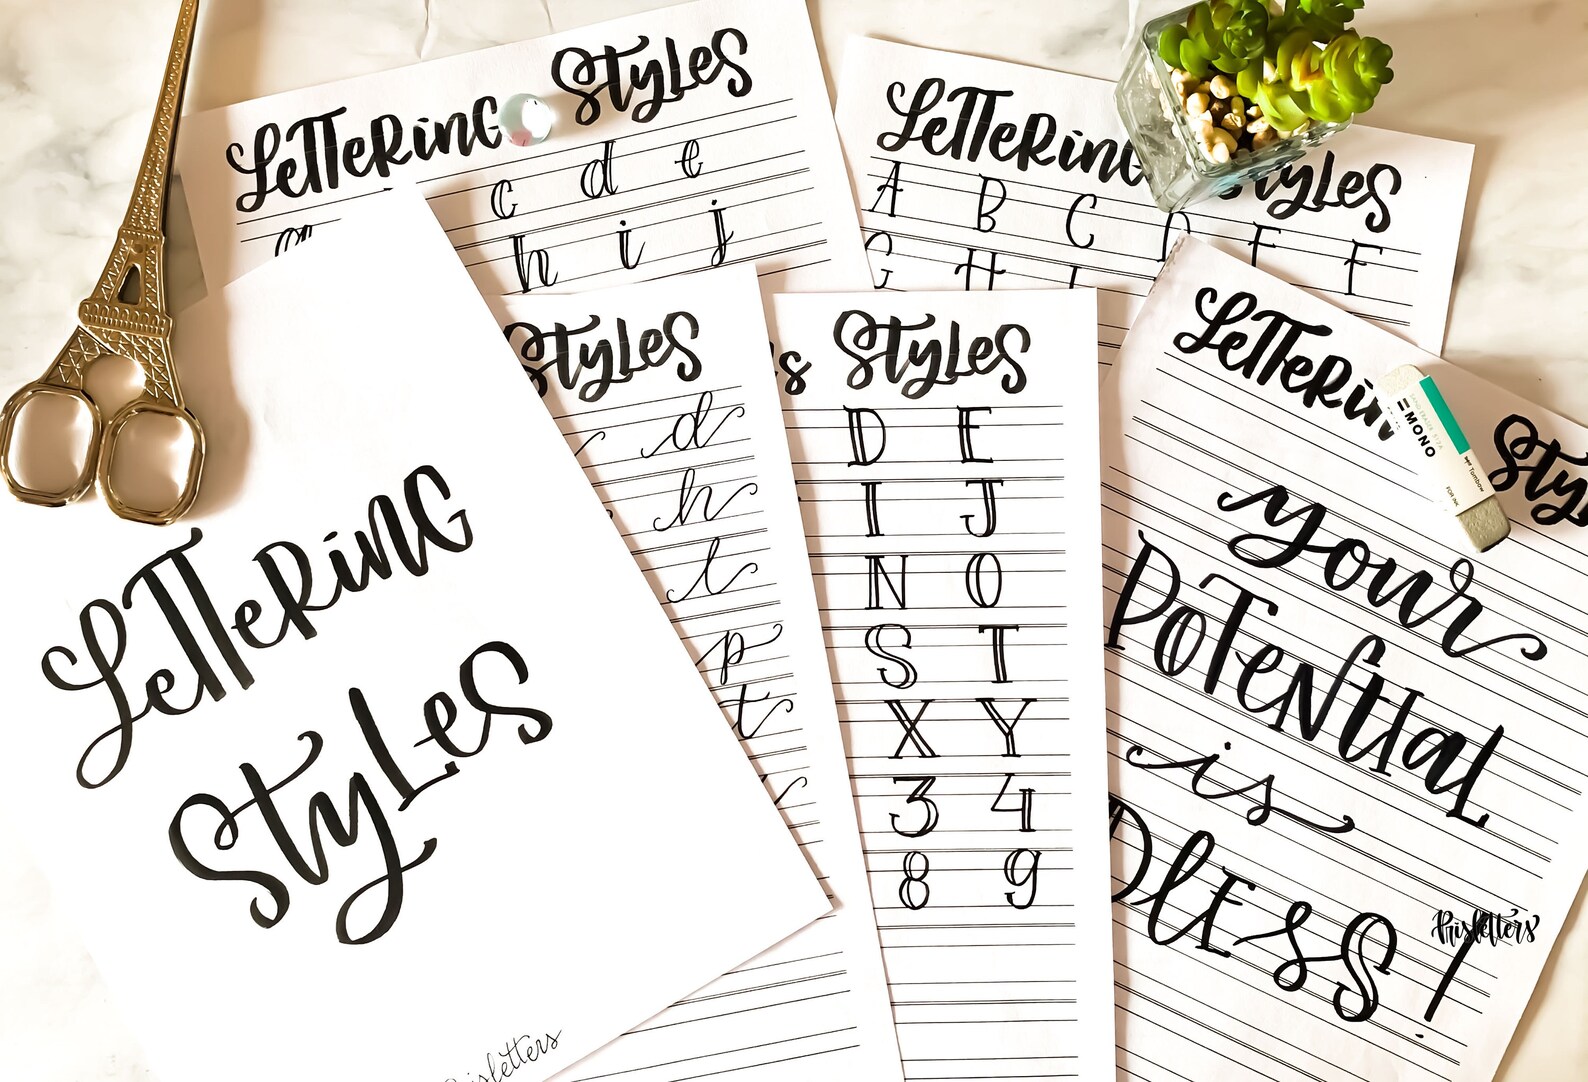 Lettering Styles
c d e
h i j
Lettering Styles
A B C D E F
G H I
Styles
d
h
l
p
t
s Styles
D E
I J
N O
S T
X Y
3 4
8 9
Lettering Styles
MONO
Tombow
FOR INK
your
Potential
is
Dless!
Prisletters
Lettering
Styles
isletters